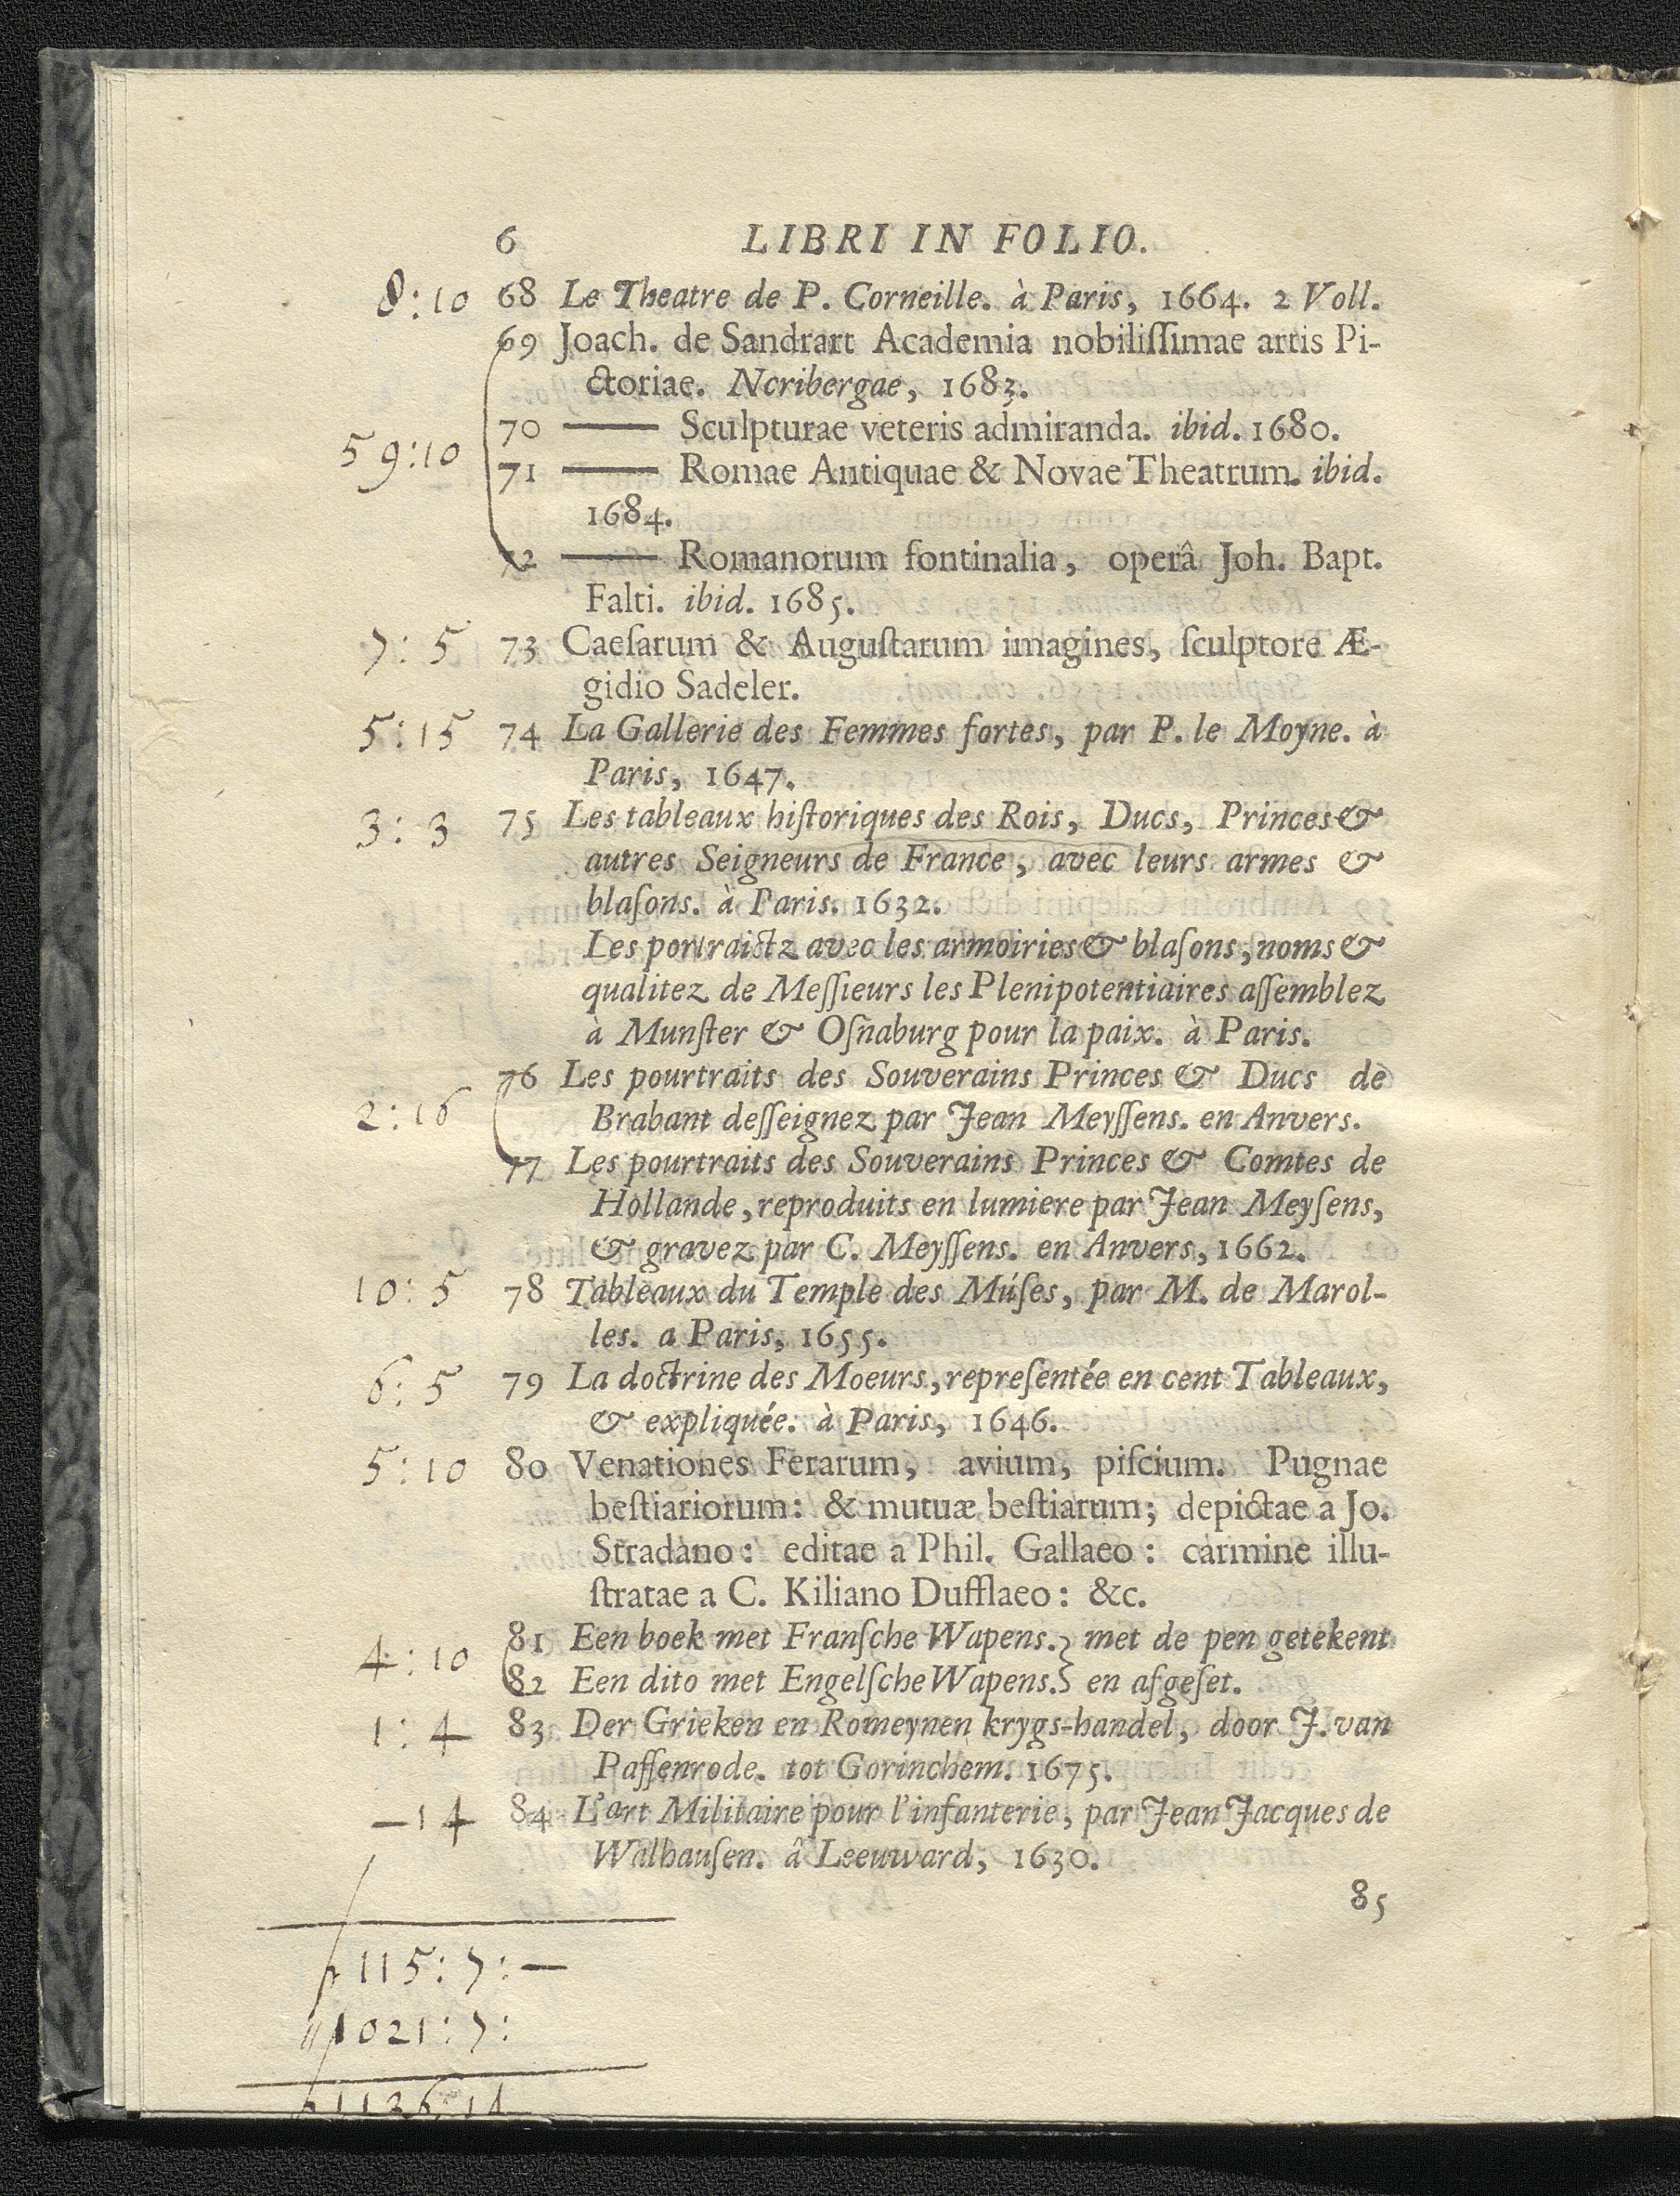 6 LIBRI IN FOLIO.
8:10 68 Le Theatre de P. Corneille. à Paris, 1664. 2 Voll.
69 Joach. de Sandrart Academia nobiliſſimae artis Pi-
ctoriae. Noribergae, 1683.
70 ——— Sculpturae veteris admiranda. ibid. 1680.
59:10 71 ——— Romae Antiquae & Novae Theatrum. ibid.
1684.
72 ——— Romanorum fontinalia, operâ Joh. Bapt.
Falti. ibid. 1685.
7:5 73 Caeſarum & Auguſtarum imagines, ſculptore Æ-
gidio Sadeler.
5:15 74 La Gallerie des Femmes fortes, par P. le Moyne. à
Paris, 1647.
3:3 75 Les tableaux hiſtoriques des Rois, Ducs, Princes &
autres Seigneurs de France, avec leurs armes &
blaſons. à Paris. 1632.
Les portraictz avec les armoiries & blaſons, noms &
qualitez de Meſſieurs les Plenipotentiaires aſſemblez
à Munſter & Oſnaburg pour la paix. à Paris.
76 Les pourtraits des Souverains Princes & Ducs de
2:16 Brabant deſſeignez par Jean Meyſſens. en Anvers.
77 Les pourtraits des Souverains Princes & Comtes de
Hollande, reproduits en lumiere par Jean Meyſens,
& gravez par C. Meyſſens. en Anvers, 1662.
10:5 78 Tableaux du Temple des Múſes, par M. de Marol-
les. a Paris, 1655.
6:5 79 La doctrine des Moeurs, repreſentée en cent Tableaux,
& expliquée. à Paris, 1646.
5:10 80 Venationes Ferarum, avium, piſcium. Pugnae
beſtiariorum: & mutuæ beſtiarum; depictae a Jo.
Stradano: editae a Phil. Gallaeo: carmine illu-
ſtratae a C. Kiliano Dufflaeo: &c.
81 Een boek met Franſche Wapens.} met de pen getekent
4:10 82 Een dito met Engelſche Wapens.} en afgeſet.
1:4 83 Der Grieken en Romeynen krygs-handel, door J. van
Paſſenrode. tot Gorinchem. 1675.
—14 84 L'art Militaire pour l'infanterie, par Jean Jacques de
Walhauſen. â Leeuward, 1630.
85
115:7:—
1021:7:
1136:14